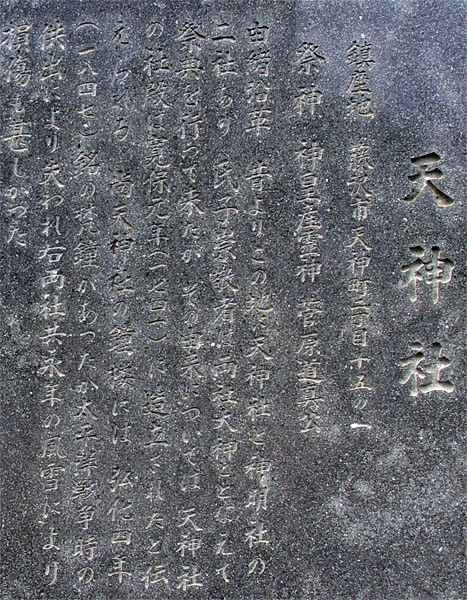 天神社
鎮座地 藤沢市天神町二丁目十五の一
祭神 神皇産霊神 菅原道真公
由緒沿革 昔よりこの地に天神社と神明社の
二社あり 氏子崇敬者は両社大神ととなえて
祭典を行って来たが その由来については 天神社
の社殿は寛保元年(一七四一)に造立されたと伝
えられる 尚天神社の
には 弘化四年
(一八四七)銘の梵鐘があったが太平洋戦争時の
供出により失われ右両社共永年の風雪により
損傷も甚しかった